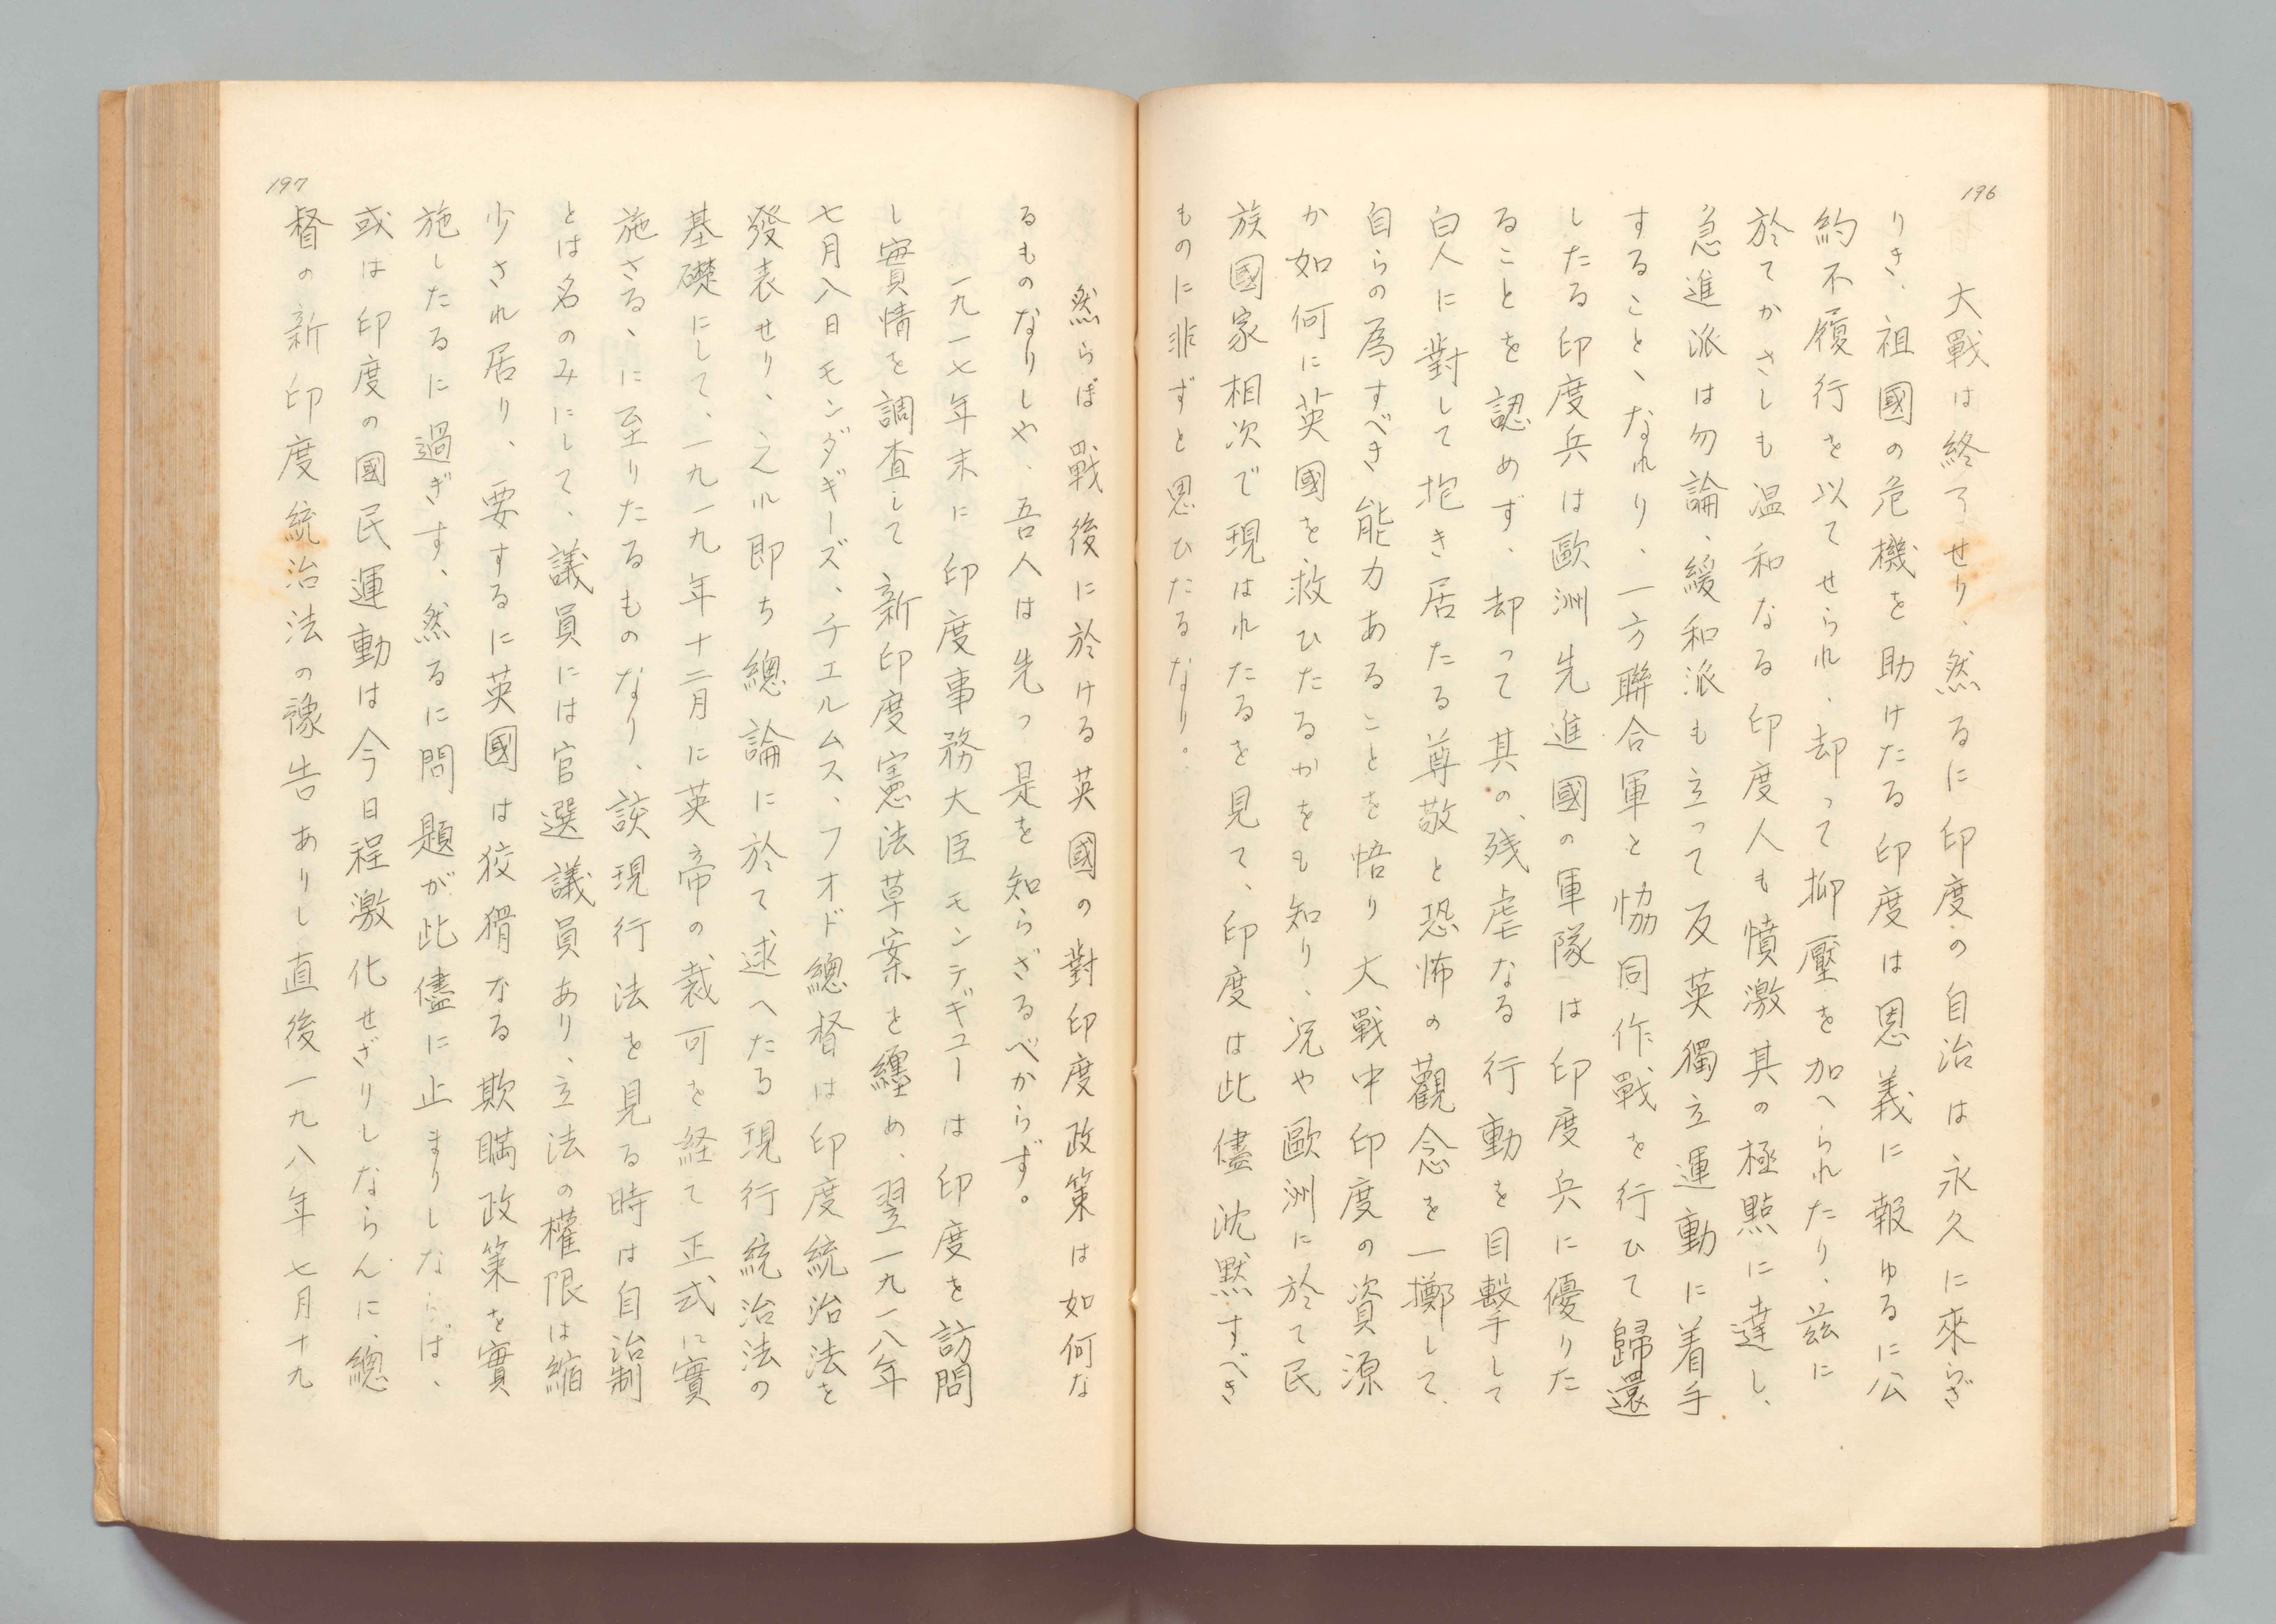 196
大戰は終了せり、然るに印度の自治は永久に來らざ
りき、祖國の危機を助けたる印度は恩義に報ゆるに公
約不履行を以てせられ、却って抑壓を加へられたり、茲に
於てかさしも温和なる印度人も憤激其の極點に達し、
急進派は勿論、緩和派も立って反英獨立運動に着手
すること、なれり、一方聯合軍と恊同作戰を行ひて歸還
したる印度兵は歐洲先進國の軍隊は印度兵に優りた
ることを認めず、却って其の残虐なる行動を目擊して
白人に對して抱き居たる尊敬と恐怖の觀念を一擲して、
自らの為すべき能力あることを悟り大戰中印度の資源
か如何に英國を救ひたるかをも知り、况や歐洲に於て民
族國家相次で現はれたるを見て、印度は此儘沈默すべき
ものに非ずと思ひたるなり。
然らば戰後に於ける英國の對印度政策は如何な
るものなりしや、吾人は先つ是を知らざるべからず。
一九一七年末に印度事務大臣モンテギューは印度を訪問
し實情を調査して新印度憲法草案を纏め、翌一九一八年
七月八日モンダギーズ、チエルムス、フオド總督は印度統治法を
發表せり、之れ即ち總論に於て逑へたる現行統治法の
基礎にして、一九一九年十二月に英帝の裁可を経て正式に實
施さる、に至りたるものなり、該現行法を見る時は自治制
とは名のみにして、議員には官選議員あり、立法の權限は縮
少され居り、要するに英國は狡猾なる欺瞞政策を實
施したるに過ぎす、然るに問題が此儘に止まりしならば、
或は印度の國民運動は今日程激化せざりしならんに、總
督の新印度統治法の豫告ありし直後一九一八年七月十九
197